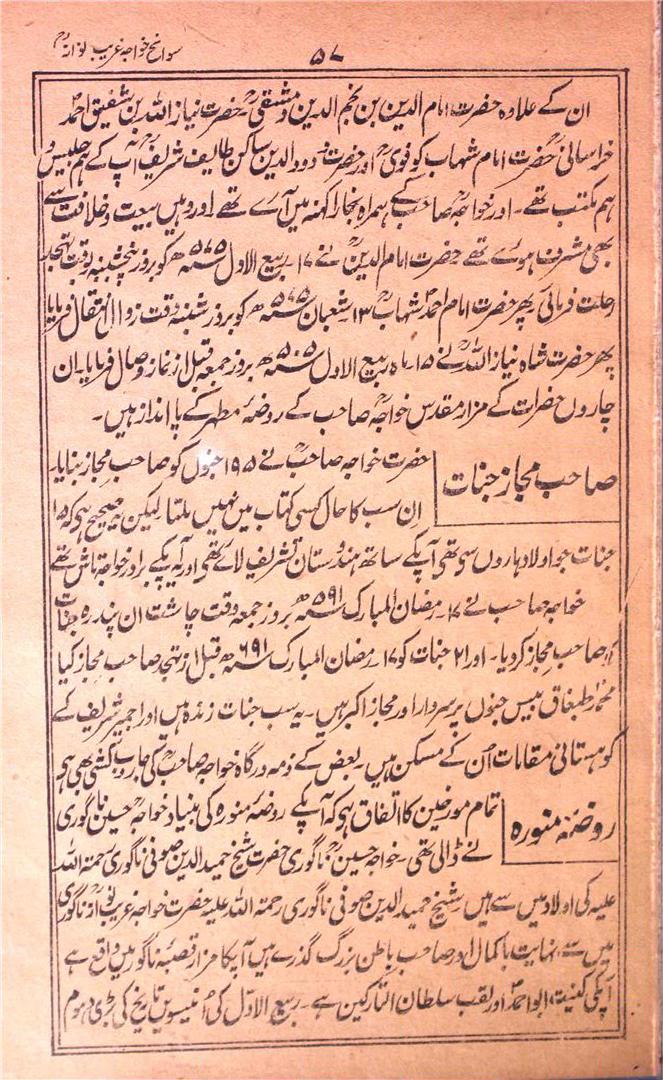 سوانح خواجہ غریب نوازؒ
۵۷
ان کے علاوہ حضرت امام الدین بن نجم الدین دمشقیؒ۔ حضرت نیاز اللہ بن شفیق احمد
خراسانیؒ حضرت امام شہاب کوفیؒ اور حضرت ودود الدین ساکن طایف شریف آپ کے ہم جلیس و
ہم مکتب تھے۔ اور خواجہؒ صاحب کے ہمراہ بخارا کہنہ میں آئے تھے اور وہیں بیعت وخلافت سے
بھی مشرف ہوئے تھے حضرت امام الدینؒ نے ۱۷۔ ربیع الاول ھ کو بروز پنچشنبہ بوقت تہجد
رحلت فرمائی۔ پھر حضرت امام احمد شہابؒ ۱۳۔ شعبان ھ کو بروز شنبہ وقت زوال انتقال فرمایا
پھر حضرت شاہ نیاز اللہؒ نے ۱۵۔ ماہ ربیع الاول ھ بروز جمعہ قبل از نماز وصال فرمایا۔ ان
چاروں حضرات کے مزار مقدس خواجہؒ صاحب کے روضۂ مطہر کے پا انداز ہیں۔
صاحب مجاز جنات
حضرت خواجہ صاحبؒ نے ۱۹۵ جنوں کو صاحب مجاز بنایا۔
ان سب کا حال کسی کتاب میں نہیں ملتا لیکن یہ صحیح ہی کہ ۱۵
جنات جو اولاد ہاروں سی تھی آپکے ساتھ ہندوستان تشریف لائے تھی اور یہ آپکے برادر خواجہ تاش تھے
خواجہ صاحب نے ۱۷۔ رمضان المبارک ۵۹۱ھ بروز جمعہ وقت چاشت ان پندرہ جنات
کو صاحب مجاز کردیا۔ اور ۲۱ جنات کو ۱۷۔ رمضان المبارک ۶۹۱ھ قبل از تہجد صاحب مجاز کیا
محمد طبغاق بیس جنوں پر سردار اور مجاز اکبر ہیں۔ یہ سب جنات زندہ ہیں اور اجمیر شریف کے
کوہستانی مقامات اُن کے مسکن ہیں۔ بعض کے ذمہ درگاہ خواجہ صاحبؒ کی جاروب کشی بھی ہی
روضۂ منورہ
تمام مورخین کا اتفاق ہی کہ آپکے روضۂ منورہ کی بنیاد خواجہ حسین ناگوری
نے ڈالی تھی۔ خواجہ حسینؒ ناگوری حضرت شیخ حمید الدین صوفی ناگوری رحمتہ اللہ
علیہ کی اولاد میں سے ہیں۔ شیخ حمید الدین صوفی ناگوری رحمتہ اللہ علیہ حضرت خواجہ غریب نوازؒ
میں سے نہایت باکمال اور صاحب باطن بزرگ گذرے ہیں آپکا مزار قصبۂ ناگور میں واقع ہے
آپکی کنیت ابو احمد اور لقب سلطان التارکین ہے۔ ربیع الاوّل کی اُنیسویں تاریخ کی بڑی دہوم